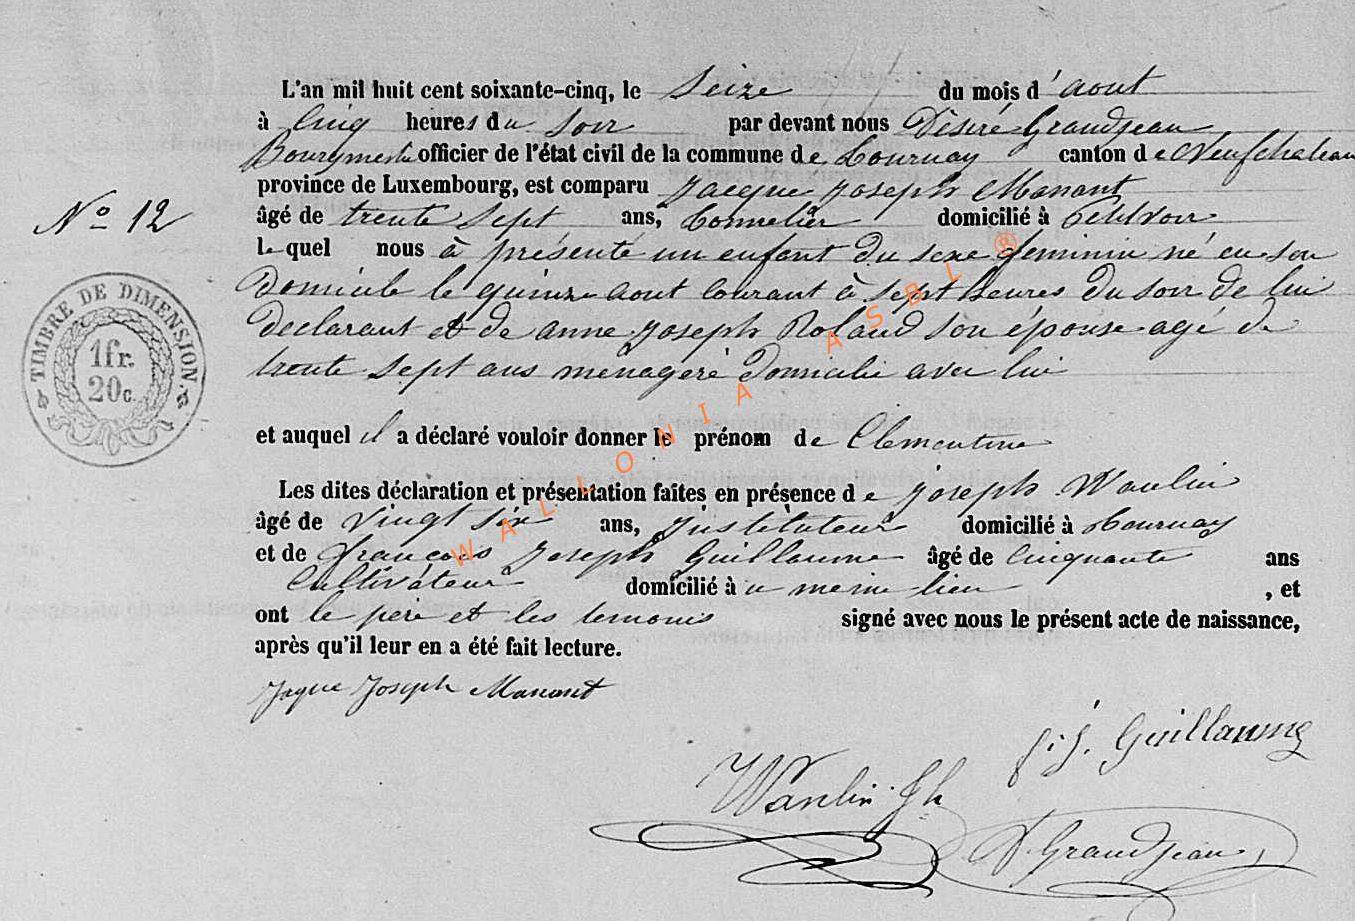 L'an mil huit cent soixante-cinq, le Seize du mois d'aout
à Cinq heures du Soir par devant nous Désiré Grandjean
Bourgmestre officier de l'état civil de la commune de Tournay canton de Neufchateau
province de Luxembourg, est comparu Jacque Joseph Manant
N° 12
âgé de trente Sept ans, Tonnelier domicilié à Petitvoir
lequel nous à présenté un enfant du sexe feminin né en son
Domicile le quinze aout Courant à sept heures du soir de lui
declarant et de anne Joseph Roland son épouse agé de
trente sept ans ménagère Domicilié avec lui
TIMBRE DE DIMENSION.
1fr.
20c.
et auquel il a déclaré vouloir donner le prénom de Clementine
Les dites déclaration et présentation faites en présence de Joseph Wanlin
âgé de Vingt six ans, Instituteur domicilié à Tournay
et de françois Joseph Guillaume âgé de Cinquante ans
Cultivateur domicilié à u meme lieu , et
ont le père et les temoins signé avec nous le présent acte de naissance,
après qu'il leur en a été fait lecture.
Jaque Joseph Manant
f. j. Guillaume
Wanlin Jh
D. Grandjean
WALLONIA ASBL ®